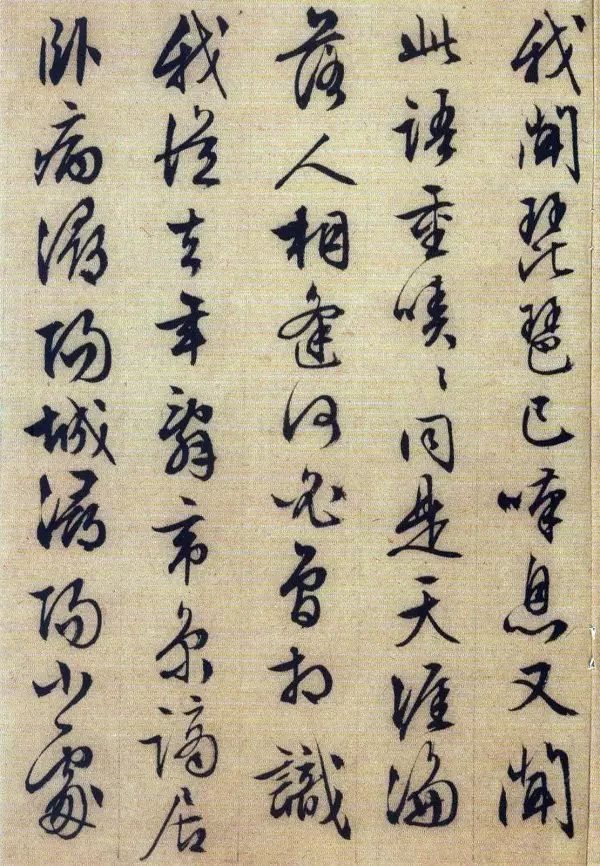 我聞琵琶已嘆息又聞
此語重唧〻同是天涯淪
落人相逢何必曾相識
我從去年辭帝京謫居
臥病潯陽城潯陽小處